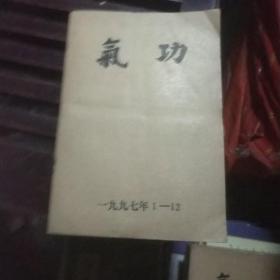 氣功
一九九七年1—12
氣